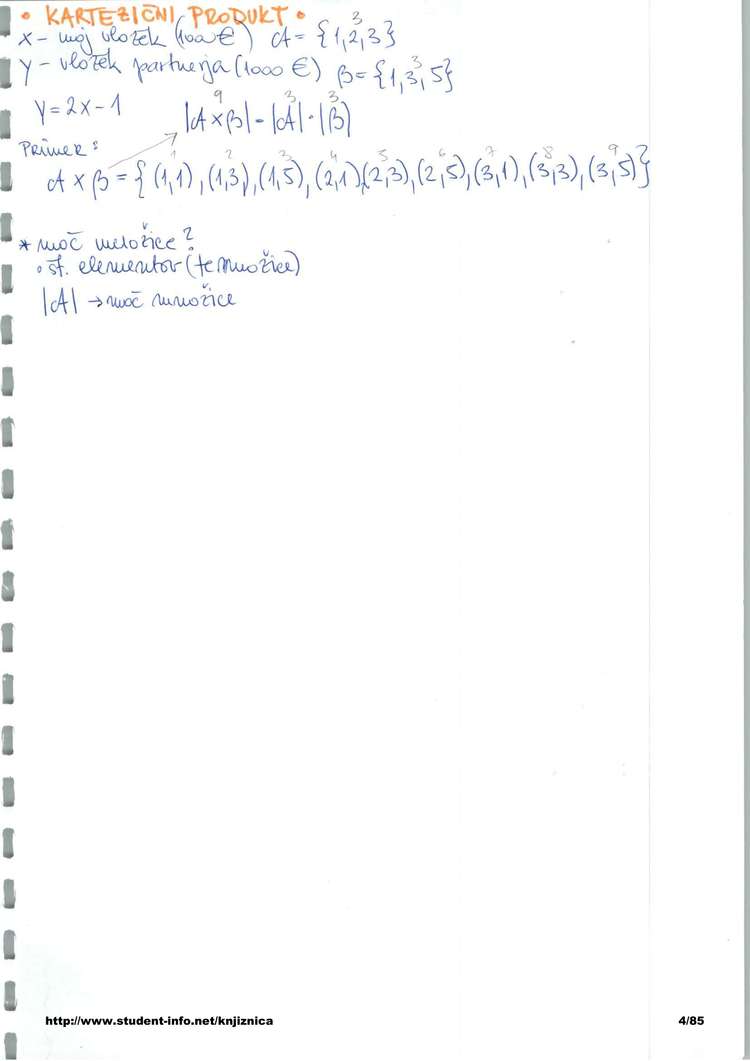 • KARTEZIČNI PRODUKT •
x - moj vložek (1000 €) A = {1,2,3} 3
y - vložek partnerja (1000 €) B = {1,3,5} 3
y = 2x - 1
9 3 3
|A x B| = |A| · |B|
PRIMER:
1 2 3 4 5 6 7 8 9
A x B = { (1,1), (1,3), (1,5), (2,1) (2,3), (2,5), (3,1), (3,3), (3,5) }
* moč množice?
• št. elementov (te množice)
|A| → moč množice
http://www.student-info.net/knjiznica 4/85